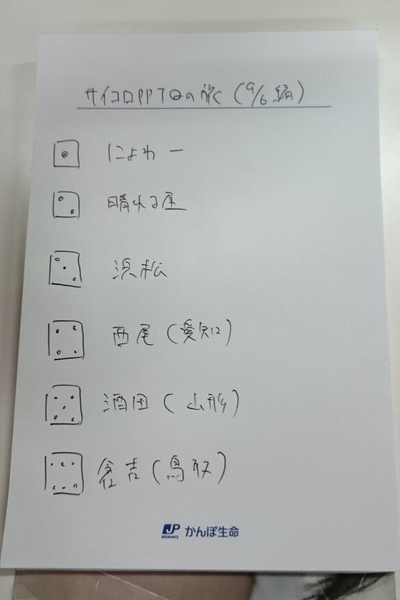 サイコロPPTQの旅(9/6編)
によわー
晴れる屋
浜松
西尾(愛知)
酒田(山形)
倉吉(鳥取)
JP INSURANCE かんぽ生命